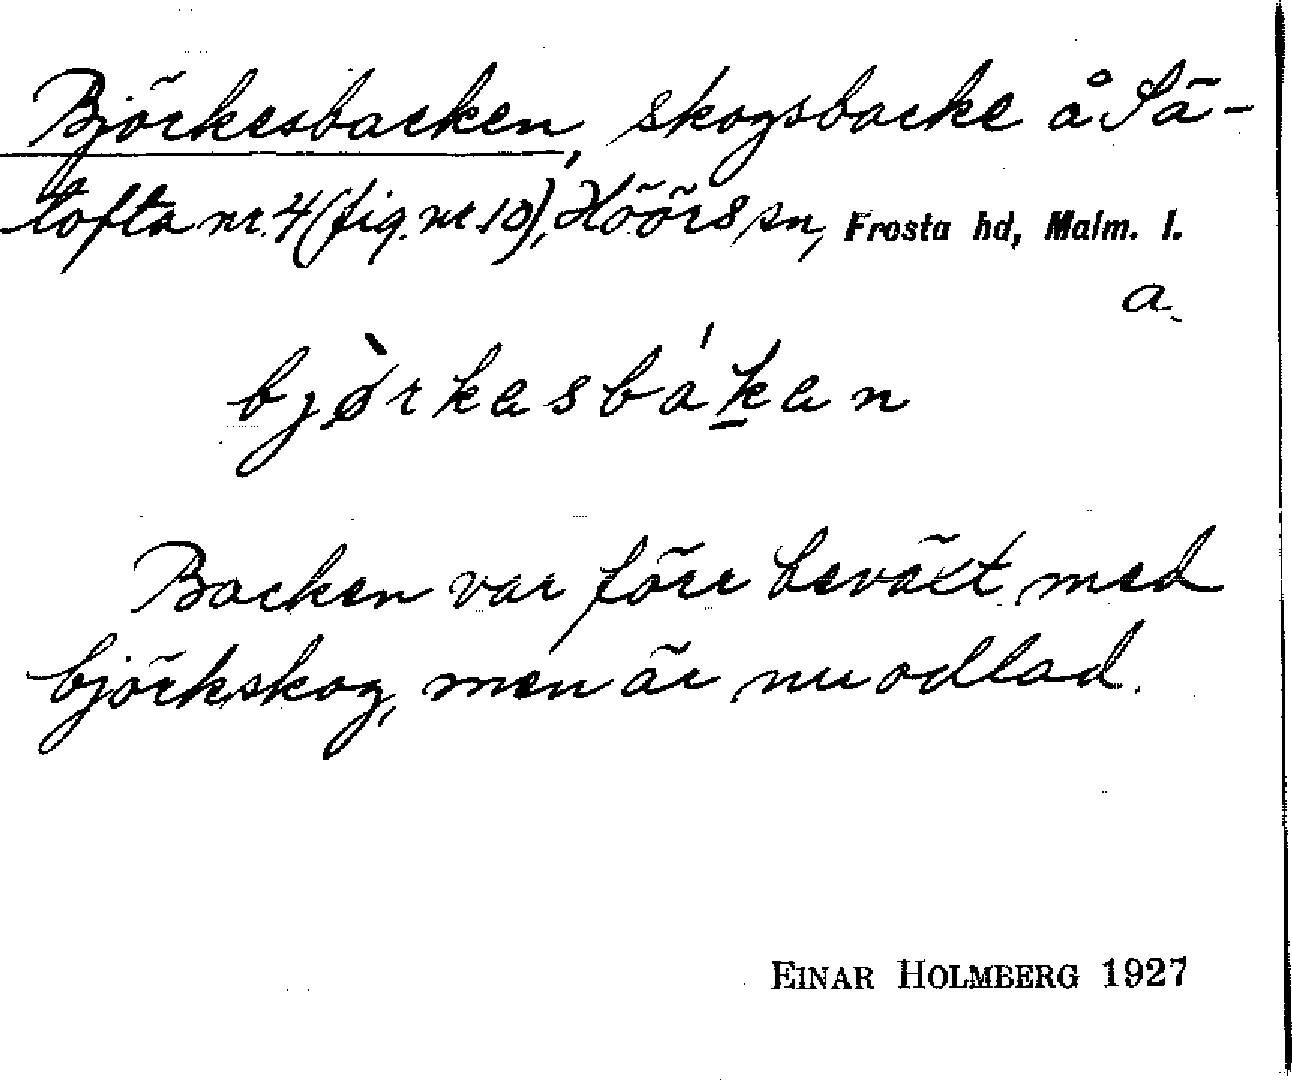 Björkesbacken, skogsbacke å Sä-
tofta nr. 4 (fig. nr 10), Höörs sn, Frosta hd, Malm. l.
a.
bjø̀rkasbákan
Backen var förr beväxt med
björkskog, men är nu odlad.
EINAR HOLMBERG 1927